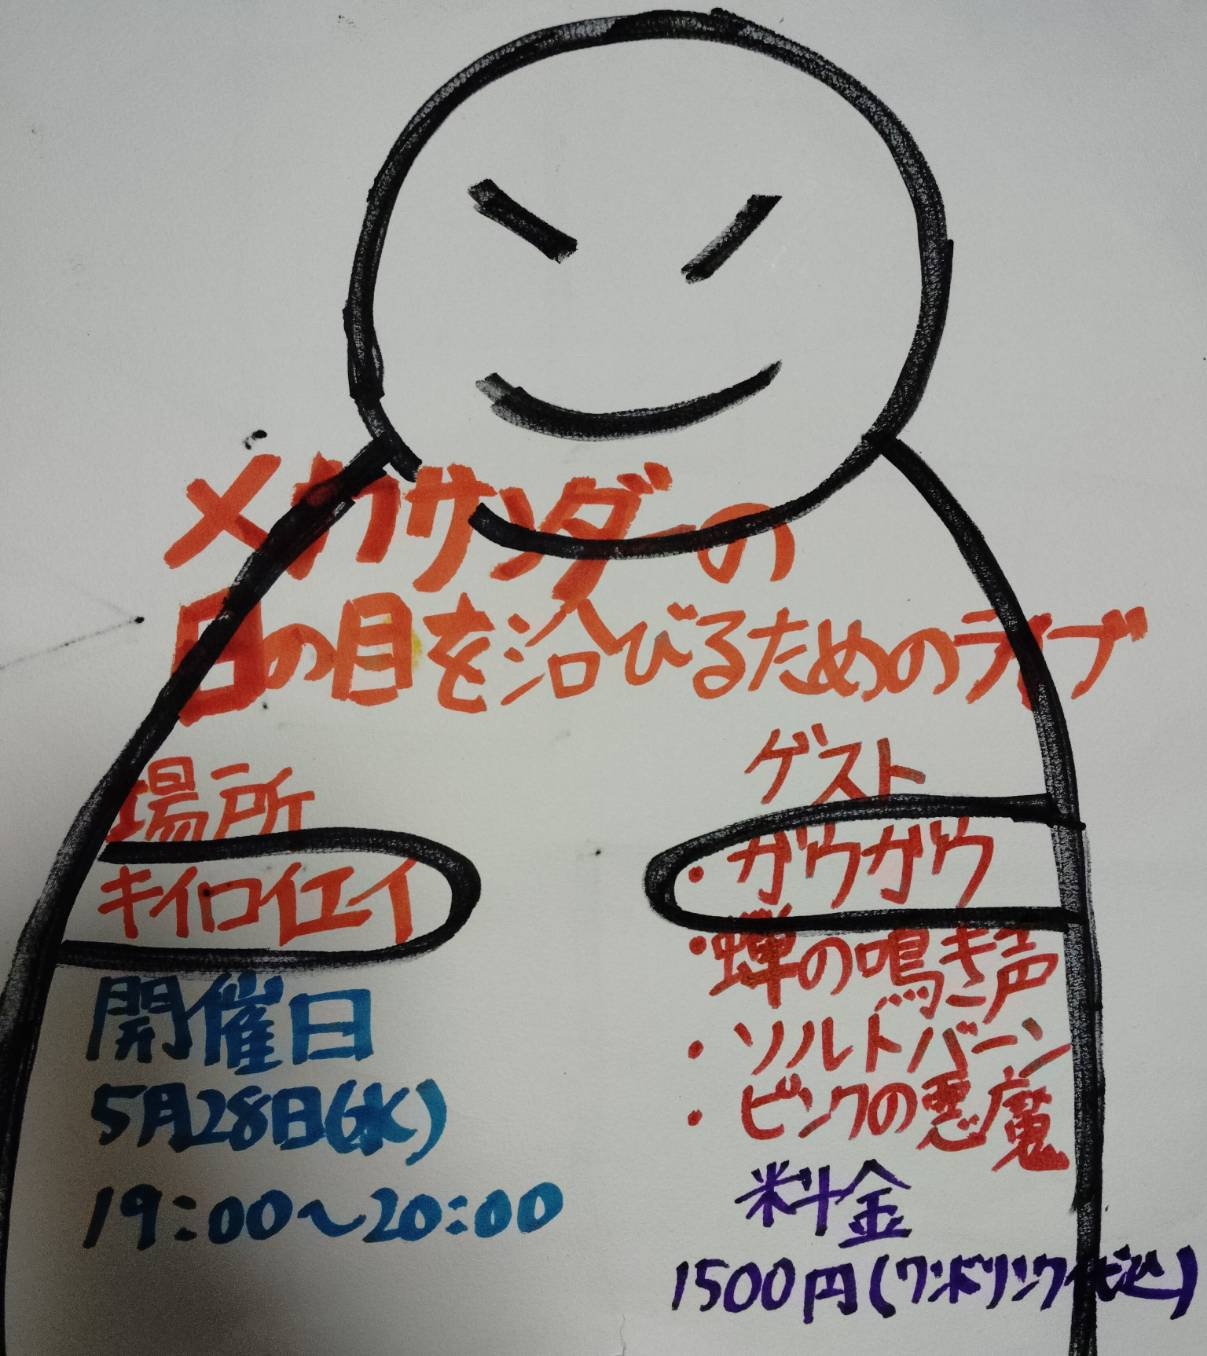 メカサンダーの
日の目を浴びるためのライブ
場所
キイロイエイ
開催日
5月28日(水)
19:00～20:00
ゲスト
・ガウガウ
・蝉の鳴き声
・ソルトバーン
・ピンクの悪魔
料金
1500円(ワンドリンク代込)